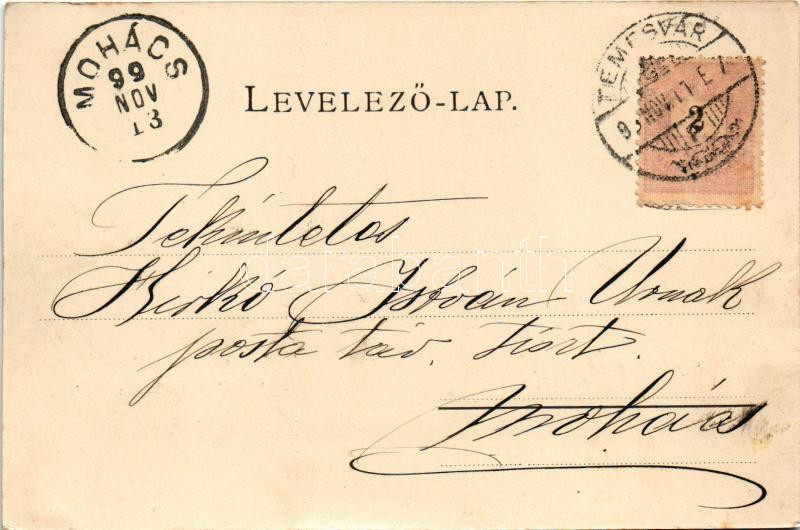 MOHÁCS
99
NOV
13
LEVELEZŐ-LAP.
TEMESVÁR
2
Tekintetes
István Urnak
posta táv. tiszt.
Mohács
darabanth